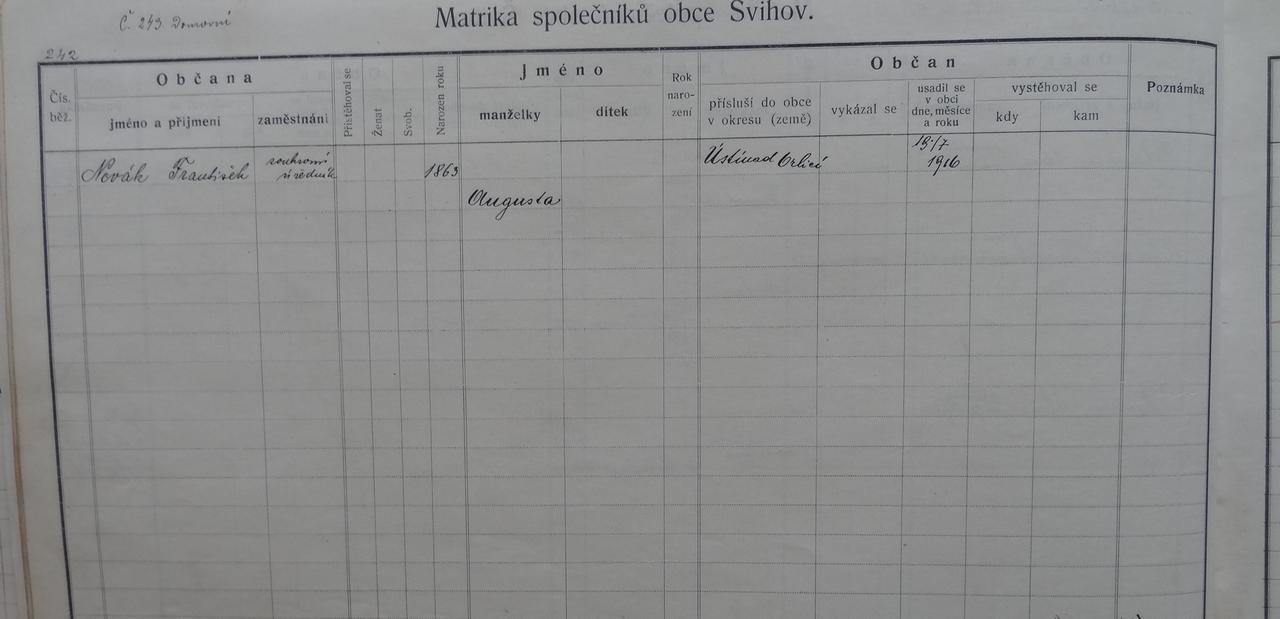 Č 243 Domovní
Matrika společníků obce Švihov.
242
Čís. běž.
Občana
jméno a příjmení
zaměstnání
Přistěhoval se
Ženat
Svob.
Narozen roku
Jméno
manželky
dítek
Rok naro- zení
Občan
přísluší do obce v okresu (země)
vykázal se
usadil se v obci dne, měsíce a roku
vystěhoval se
kdy
kam
Poznámka
Novák František
soukromí
úředník
1863
Ústínad Orlicí
19/7
1916
Augusta